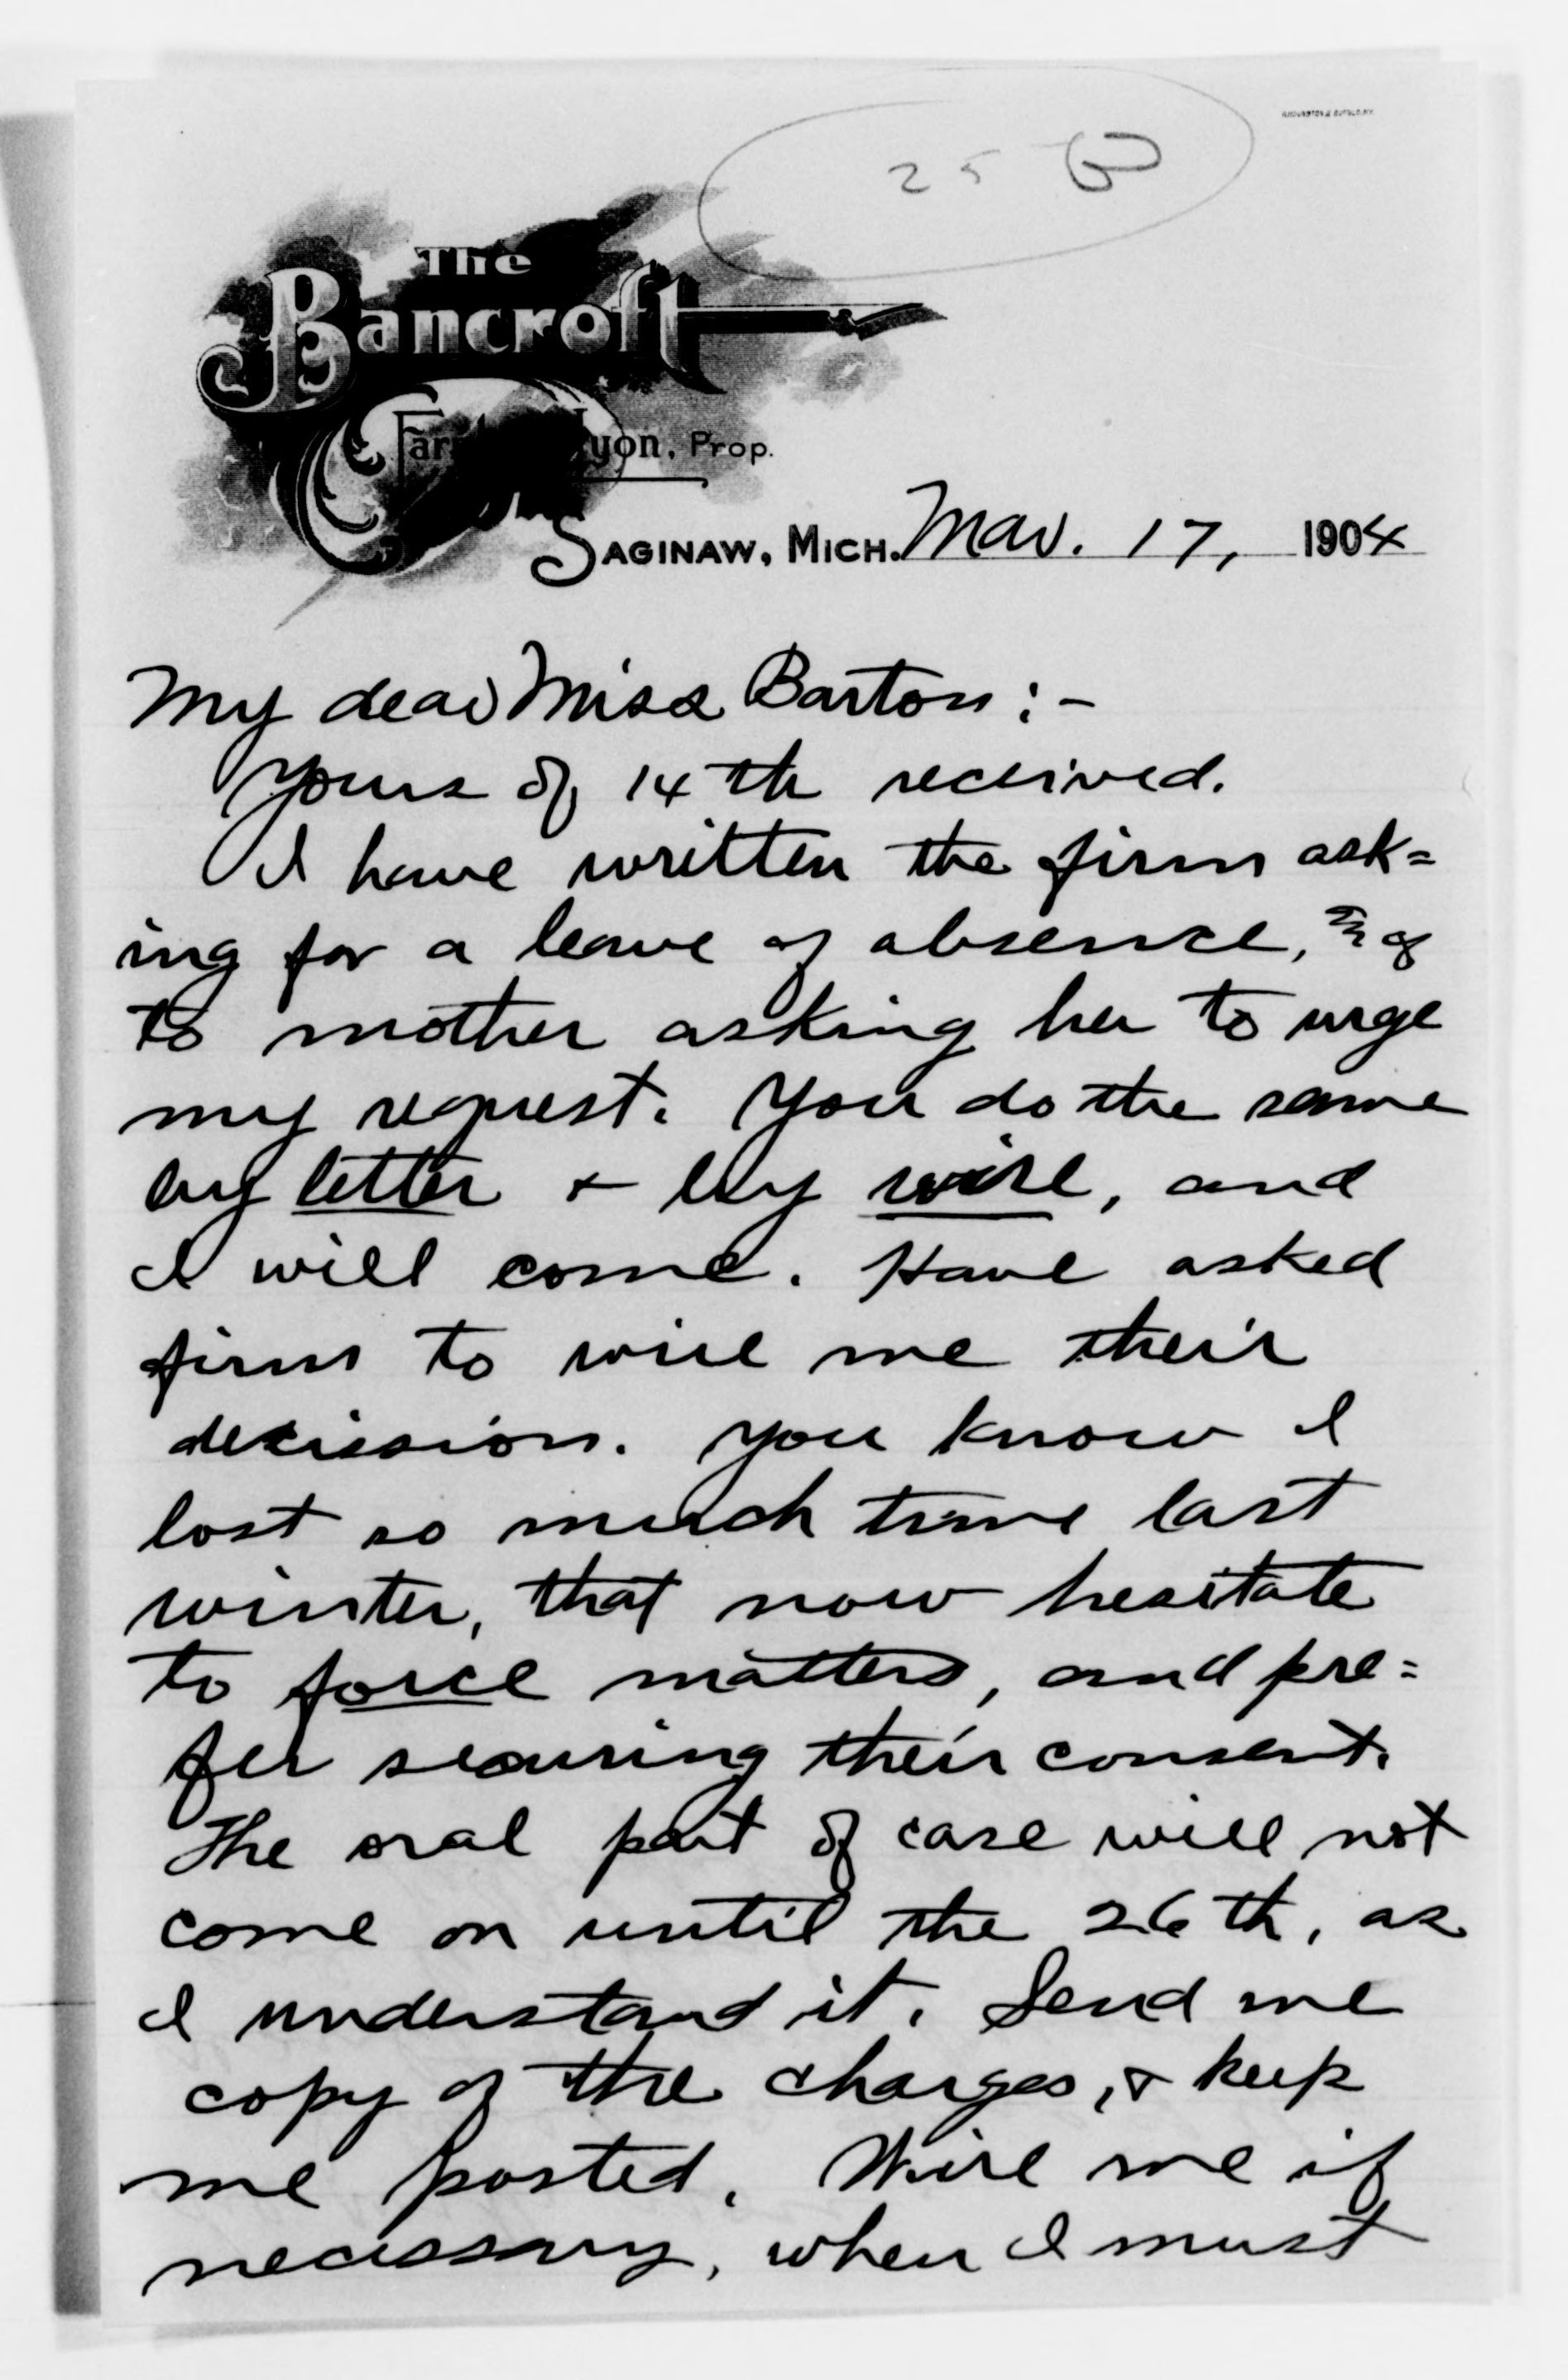 25
The
Bancroft
Far yon, Prop.
SAGINAW, MICH. Mar. 17, 1904
My dear Miss Barton :-
Yours of 14th received.
I have written the firm ask=
ing for a leave of absence,
to mother asking her to urge
my request. You do the same
by letter & by wire, and
I will come. Have asked
firm to wire me their
decission. You know I
lost so much time last
winter, that now hesitate
to force matters, and pre=
fer securing their consent.
The oral part of case will not
come on until the 26th, as
I understand it. Send me
copy of the charges, & keep
me posted. Wire me if
necessary, when I must